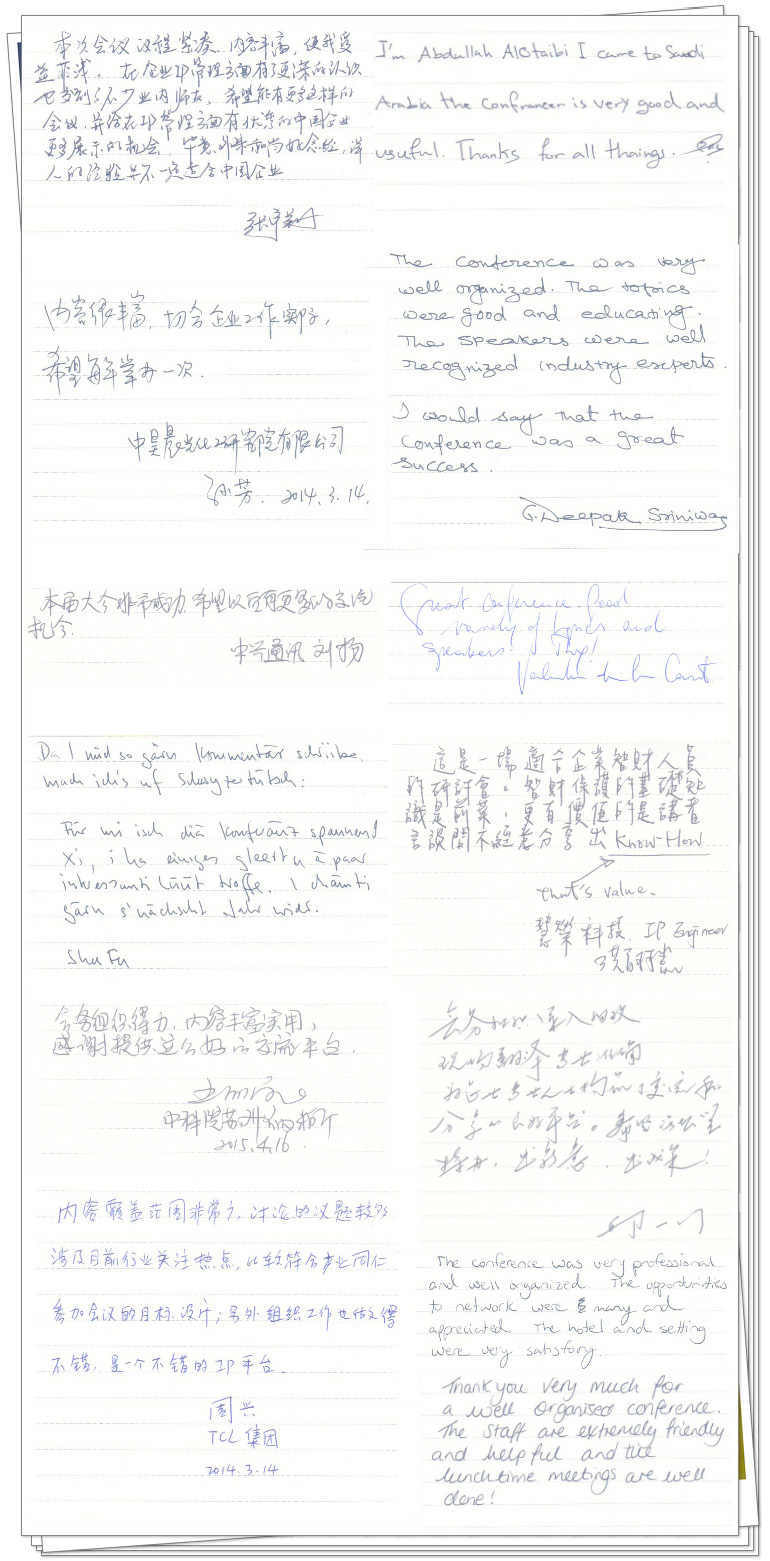 本次会议议程紧凑，内容丰富，使我受
益匪浅。在企业IP管理方面有了更深的认识
也学到了不少业内师友。希望能有更多这样的
会议，并给在IP管理方面有优秀的中国企业
更多展示的机会。毕竟，外来和尚好念经，洋
人的经验并不一定适合中国企业
内容很丰富，切合企业工作实际，
希望每年举办一次.
中昊晨光化工研究院有限公司
孙芳. 2014.3.14.
本届大会非常成功，希望以后有更多的交流
机会.
中兴通讯 刘扬
Da I mid so gärn Kommentär schriibe,
mach ich's uf Schwyzertütsch:
Für mi isch diä Konferänz spannend
xi, i ha einiges gleert u ä paar
interessanti Lüüt troffe. I chämti
gärn s'nächscht Jahr wider.
Shu Fu
会务组织得力，内容丰富实用，
感谢提供这么好的交流平台.
中科院苏州纳米所
2015.4.16.
内容覆盖范围非常广，讨论的议题较多
涉及目前行业关注热点，比较符合产业同仁
参加会议的目标设计；另外组织工作也做得
不错，是一个不错的IP平台.
周兴
TCL集团
2014.3.14
I'm Abdullah AlOtaibi I came to Saudi
Arabia the Confrancer is very good and
useful. Thanks for all thaings.
The Conference was very
well organized. The topics
were good and educating.
The Speakers were well
recognized industry experts.
I would say that the
Conference was a great
Success.
G. Deepak Sriniwas
Great Conference Good
variety of topics and
speakers! Thx!
這是一場適合企業智財人員
的研討會。智財保護的基礎知
識是前菜，更有價值的是講者
言談間不經意分享出 Know-How
that's value.
慧榮科技 IP Engineer
分享的良好平台。希望论坛坚
持办，出新意，出成果！
The conference was very professional
and well organized. The opportunities
to network were many and
appreciated. The hotel and setting
were very satisfory.
Thank you very much for
a well organised conference.
The Staff are extremely friendly
and helpful and the
lunchtime meetings are well
done!